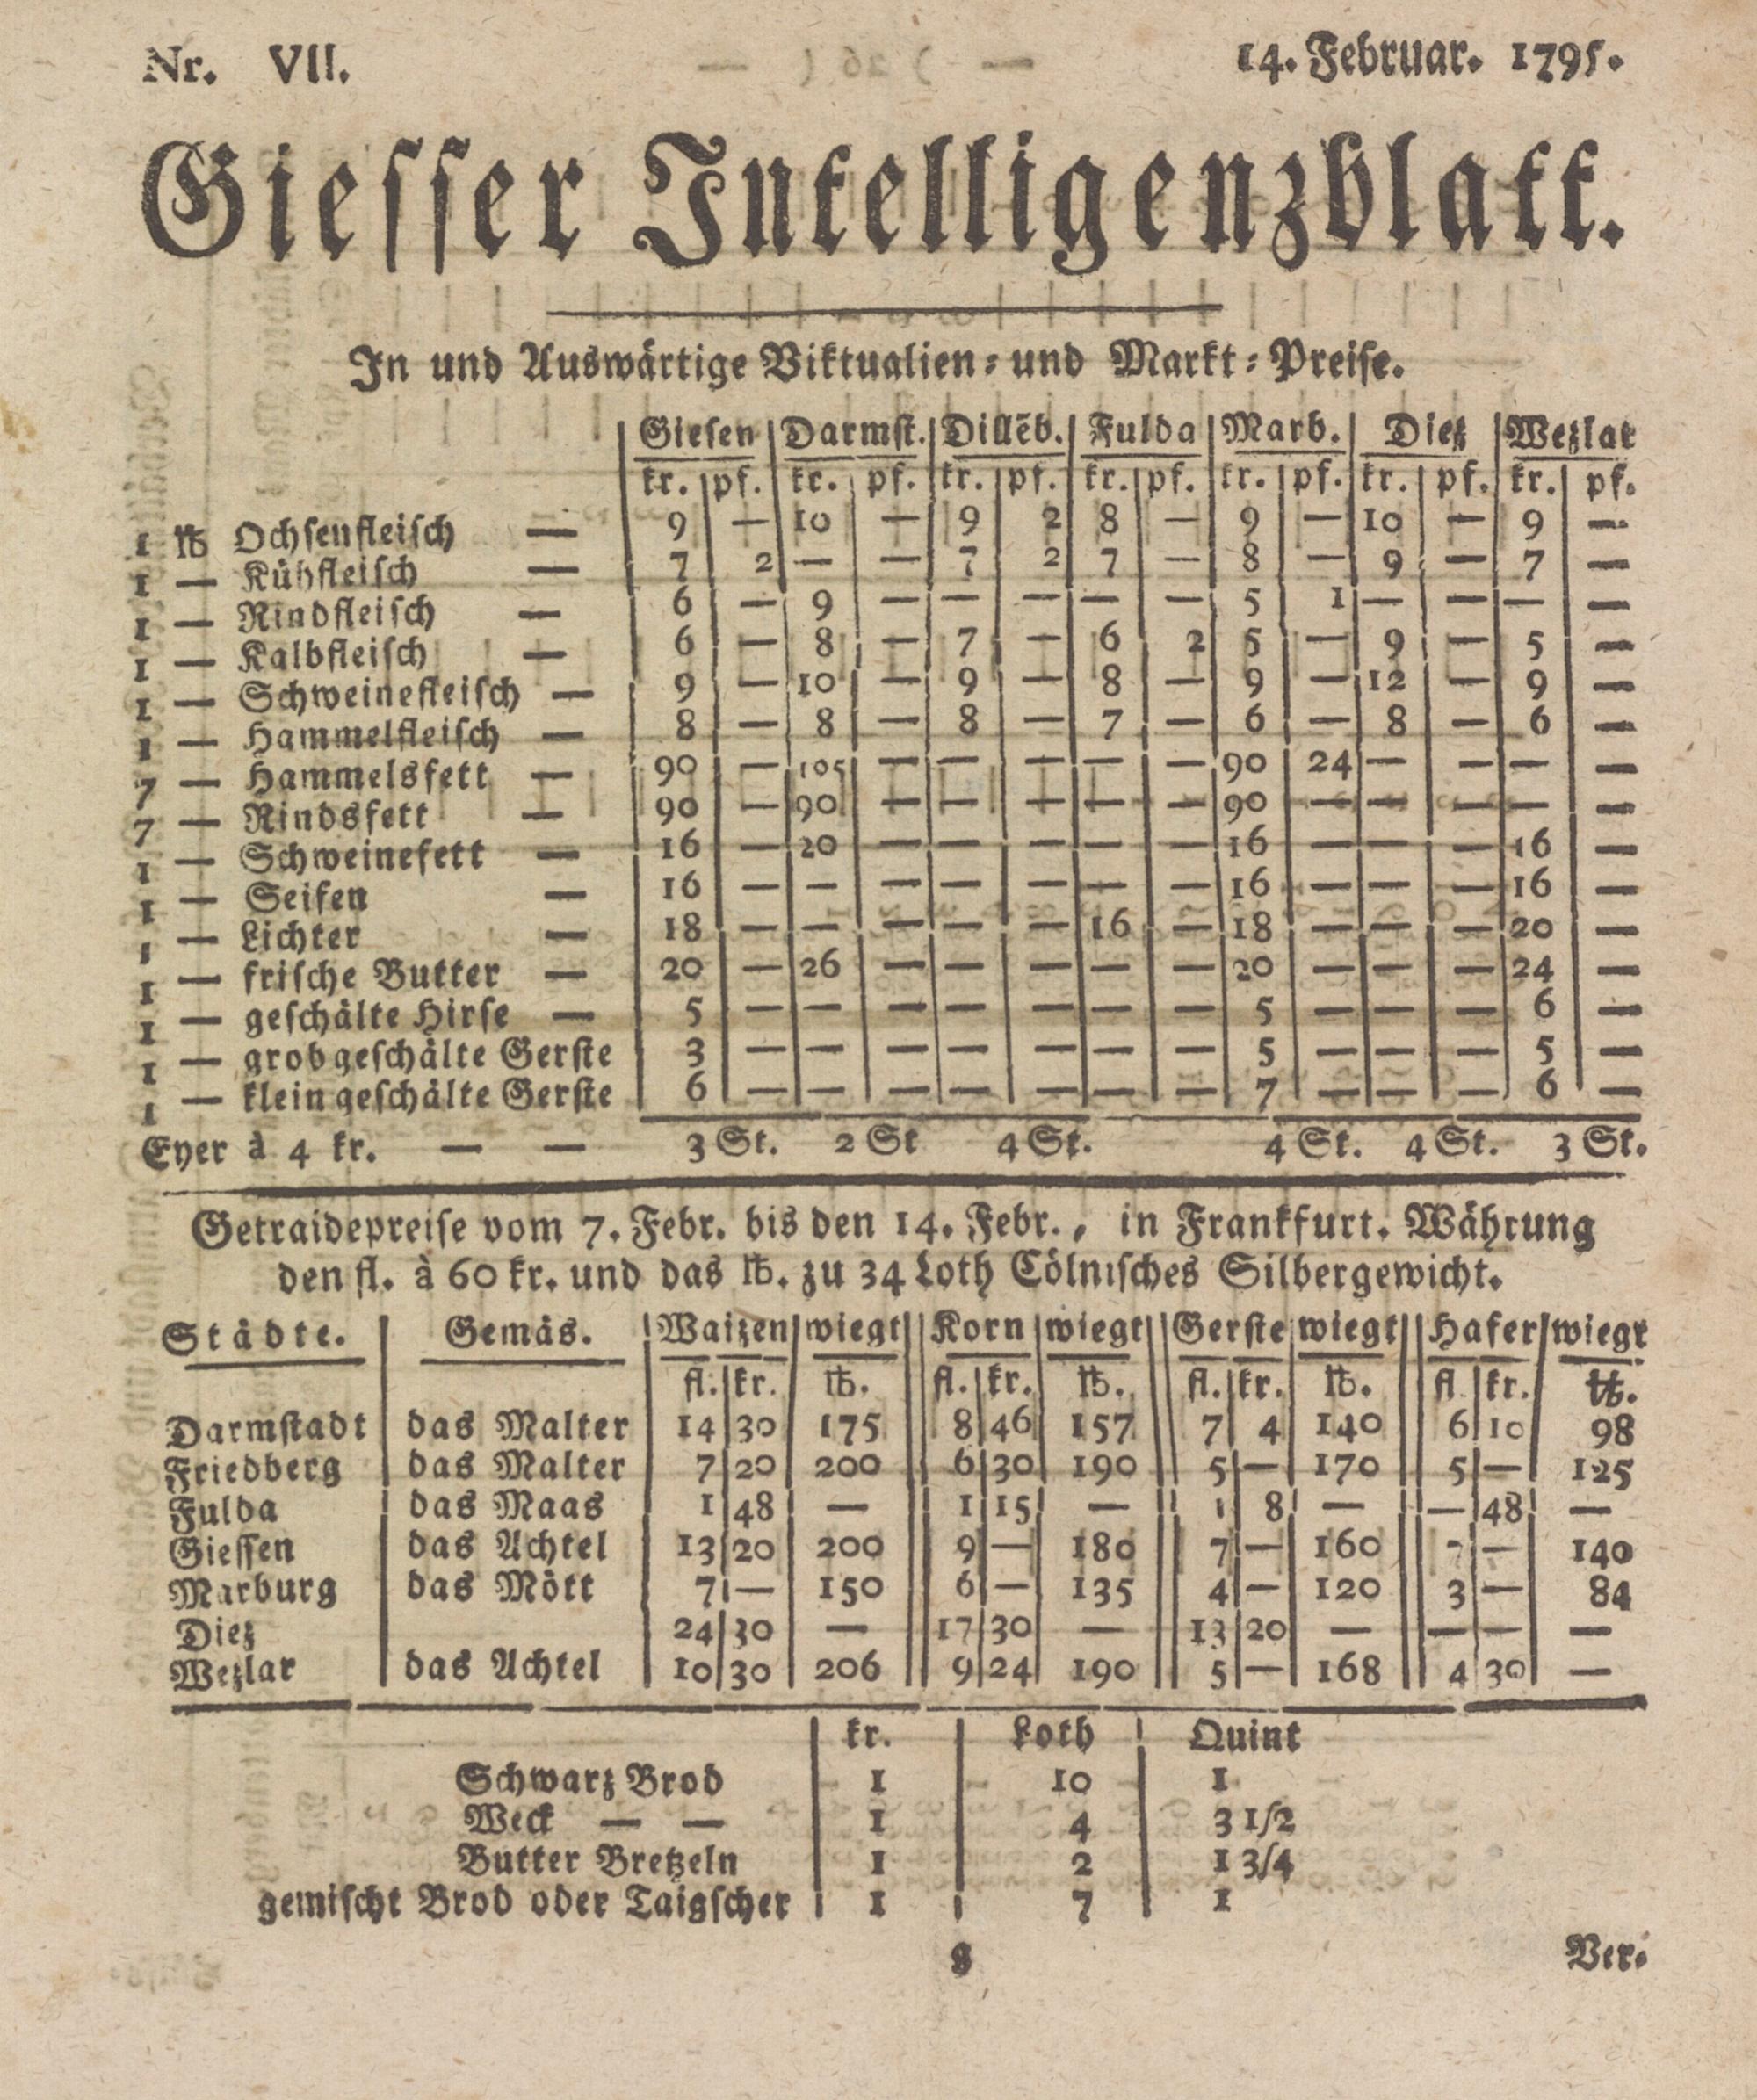 Nr. VII. 14. Februar. 1795.
Giesser Intelligenzblatt.
In und Auswärtige Viktualien- und Markt-Preise.
Giesen | Darmst. | Dillēb. | Fulda | Marb. | Dietz | Wetzlar
kr. | pf. | kr. | pf. | kr. | pf. | kr. | pf. | kr. | pf. | kr. | pf. | kr. | pf.
1 ℔ Ochsenfleisch — 9 | — | 10 | — | 9 | 2 | 8 | — | 9 | — | 10 | — | 9 | —
1 — Kühfleisch — 7 | 2 | — | — | 7 | 2 | 7 | — | 8 | — | 9 | — | 7 | —
1 — Rindfleisch — 6 | — | 9 | — | — | — | — | — | 5 | 1 | — | — | — | —
1 — Kalbfleisch — 6 | — | 8 | — | 7 | — | 6 | 2 | 5 | — | 9 | — | 5 | —
1 — Schweinefleisch — 9 | — | 10 | — | 9 | — | 8 | — | 9 | — | 12 | — | 9 | —
1 — Hammelfleisch — 8 | — | 8 | — | 8 | — | 7 | — | 6 | — | 8 | — | 6 | —
7 — Hammelsfett — 90 | — | 105 | — | — | — | — | — | 90 | 24 | — | — | — | —
7 — Rindsfett — 90 | — | 90 | — | — | — | — | — | 90 | — | — | — | — | —
1 — Schweinefett — 16 | — | 20 | — | — | — | — | — | 16 | — | — | — | 16 | —
1 — Seifen — 16 | — | — | — | — | — | — | — | 16 | — | — | — | 16 | —
1 — Lichter — 18 | — | — | — | — | — | 16 | — | 18 | — | — | — | 20 | —
1 — frische Butter — 20 | — | 26 | — | — | — | — | — | 20 | — | — | — | 24 | —
1 — geschälte Hirse — 5 | — | — | — | — | — | — | — | 5 | — | — | — | 6 | —
1 — grob geschälte Gerste 3 | — | — | — | — | — | — | — | 5 | — | — | — | 5 | —
1 — klein geschälte Gerste 6 | — | — | — | — | — | — | — | 7 | — | — | — | 6 | —
Eyer à 4 kr. — — 3 St. 2 St 4 St. 4 St. 4 St. 3 St.
Getraidepreise vom 7. Febr. bis den 14. Febr., in Frankfurt. Währung
den fl. à 60 kr. und das ℔. zu 34 Loth Cölnisches Silbergewicht.
Städte. | Gemäs. | Waizen | wiegt | Korn | wiegt | Gerste | wiegt | Hafer | wiegt
fl. | kr. | ℔. | fl. | kr. | ℔. | fl. | kr. | ℔. | fl | kr. | ℔.
Darmstadt | das Malter | 14 | 30 | 175 | 8 | 46 | 157 | 7 | 4 | 140 | 6 | 10 | 98
Friedberg | das Malter | 7 | 20 | 200 | 6 | 30 | 190 | 5 | — | 170 | 5 | — | 125
Fulda | das Maas | 1 | 48 | — | 1 | 15 | — | 1 | 8 | — | — | 48 | —
Giessen | das Achtel | 13 | 20 | 200 | 9 | — | 180 | 7 | — | 160 | | — | 140
Marburg | das Mött | 7 | — | 150 | 6 | — | 135 | 4 | — | 120 | 3 | — | 84
Dietz | | 24 | 30 | — | 17 | 30 | — | 13 | 20 | — | — | — | —
Wetzlar | das Achtel | 10 | 30 | 206 | 9 | 24 | 190 | 5 | — | 168 | 4 | 30 | —
kr. | Loth | Quint
Schwarz Brod | 1 | 10 | 1
Weck — — | 1 | 4 | 3 1/2
Butter Bretzeln | 1 | 2 | 1 3/4
gemischt Brod oder Taigscher | 1 | 7 | 1
g Ver-